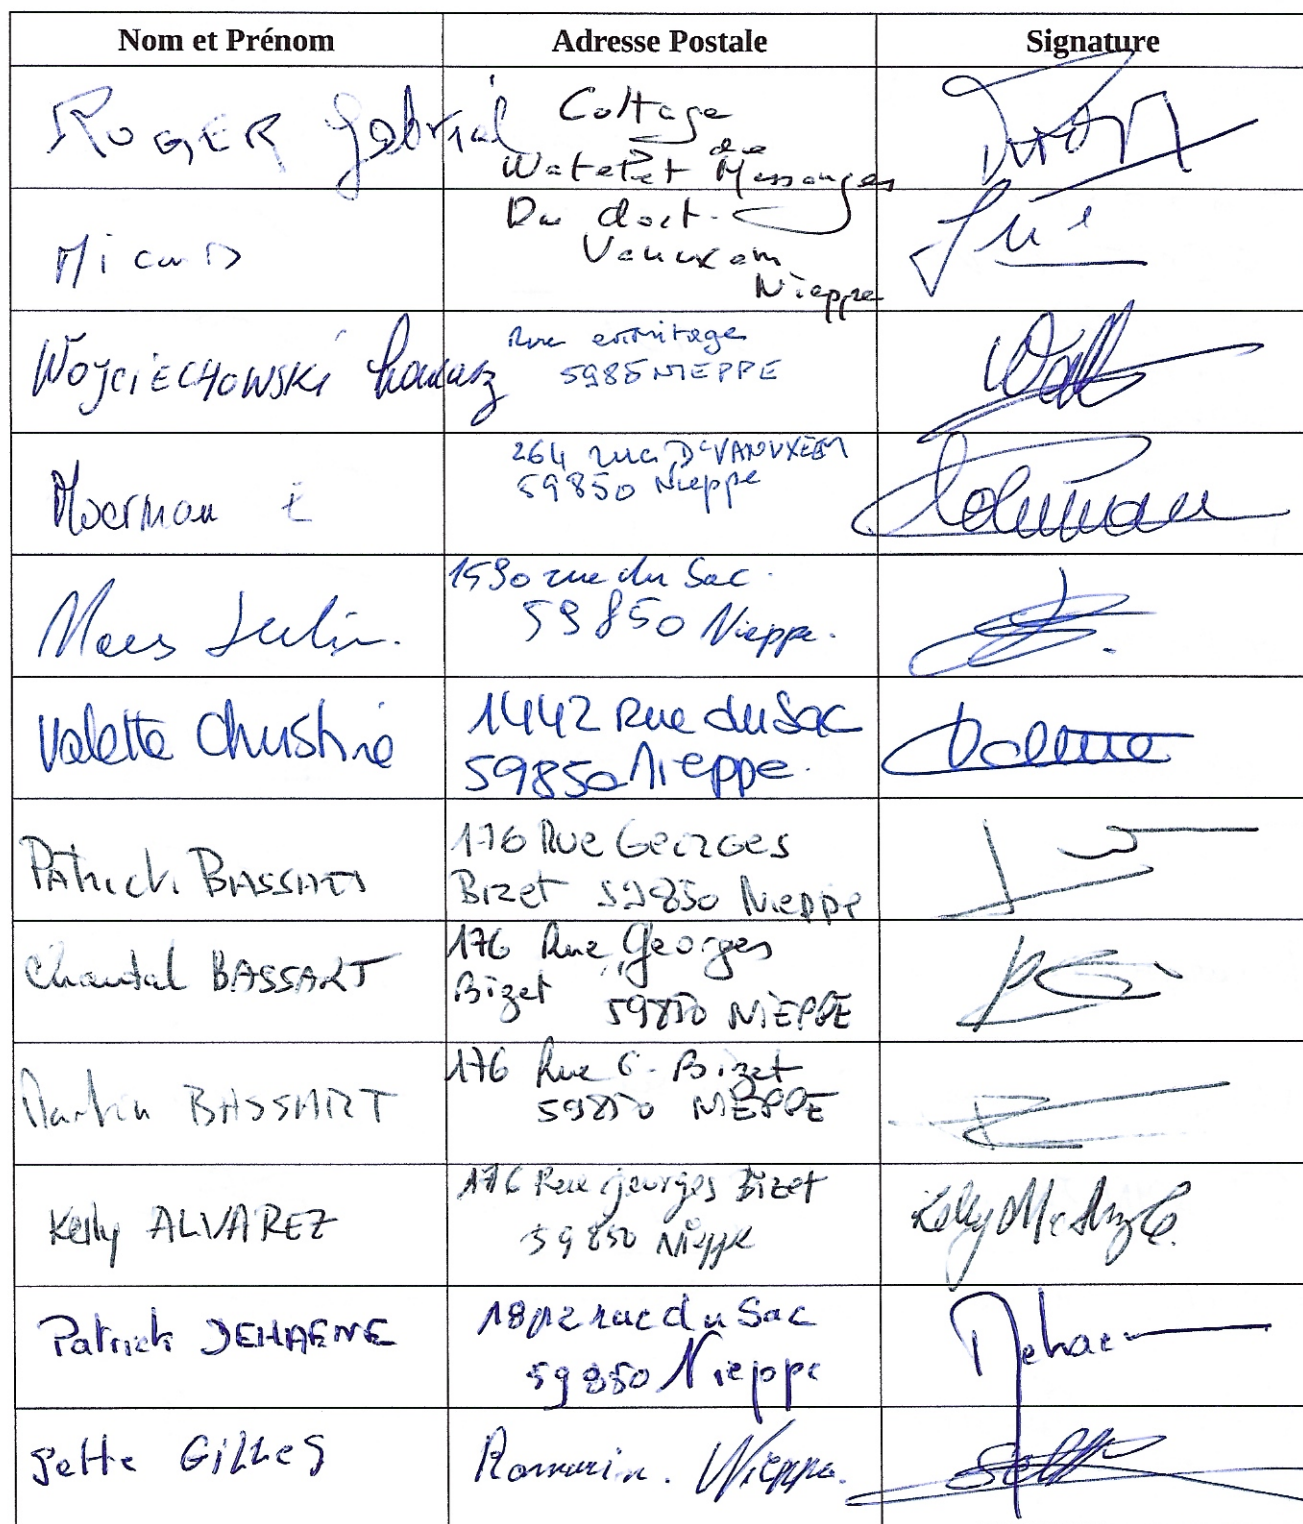 Nom et Prénom
Adresse Postale
Signature
ROGER Gabriel
Cottage
Watelet des Mesanges
Micard
Du doct.
Vanuxem
Nieppe
WOJCIECHOWSKI
Rue ermitage
5985 NIEPPE
Moerman E
264 rue Dr VANUXEEM
59850 Nieppe
Maes Julin.
1590 rue du Sac.
59850 Nieppe.
Valette Christine
1442 Rue du Sac
59850 Nieppe.
Patrick BASSART
176 Rue Georges
Bizet 59850 Nieppe
Chantal BASSART
176 Rue Georges
Bizet 59850 NIEPPE
Martin BASSART
176 Rue G. Bizet
59850 NIEPPE
Kelly ALVAREZ
176 Rue Georges Bizet
59850 Nieppe
Patrick DEHAENE
1812 rue du Sac
59850 Nieppe
Dehaen
Sette GILLES
Romarin. Nieppe.